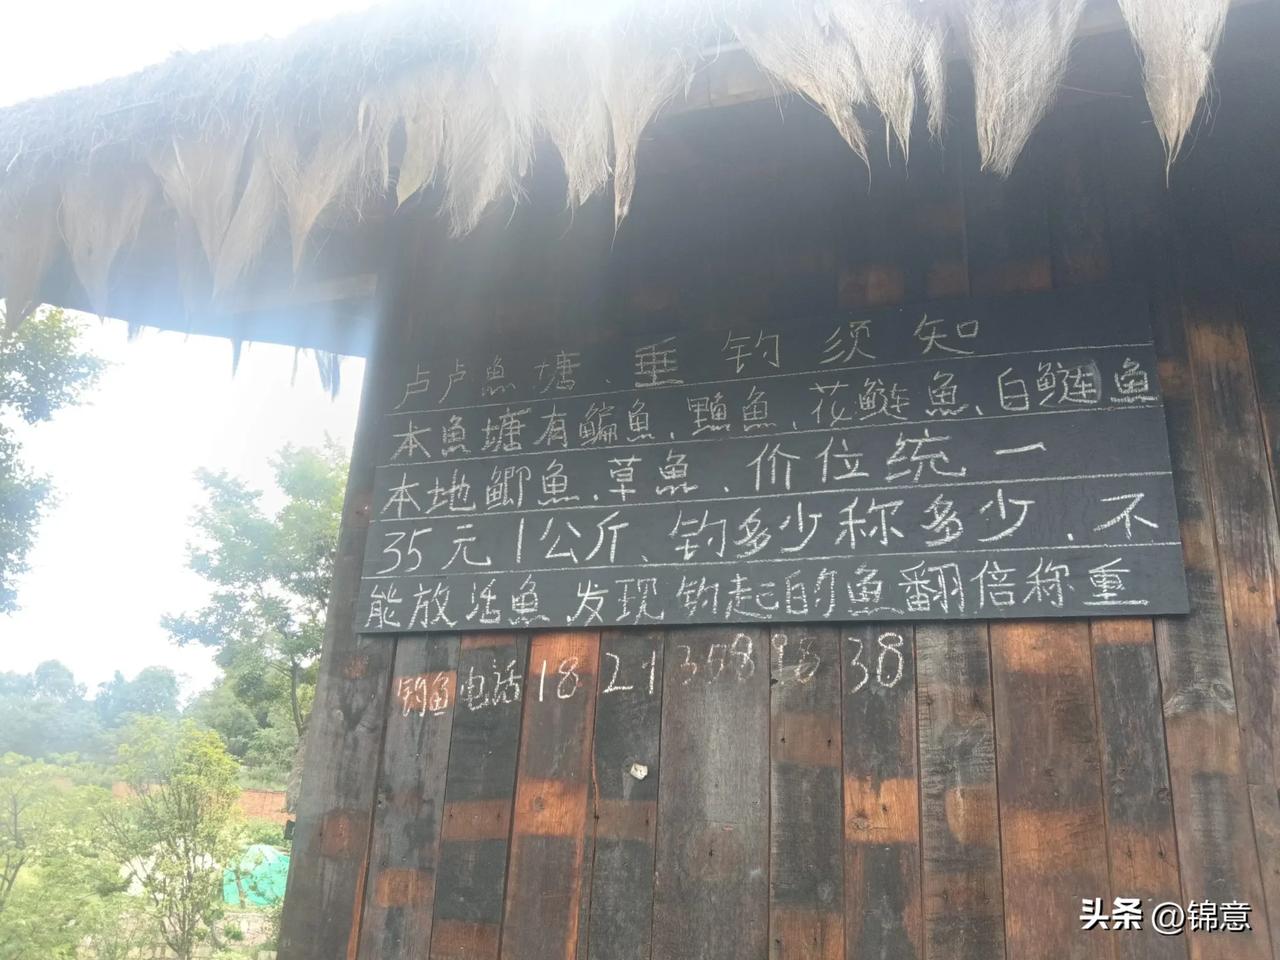 卢卢鱼塘、垂钓须知
本鱼塘有鳊鱼、鱼、花鲢鱼、白鲢鱼
本地鲫鱼、草鱼、价位统一
35元1公斤、钓多少称多少.不
能放活鱼 发现钓起的鱼翻倍称重
钓鱼电话 18 21 38
头条 @锦意